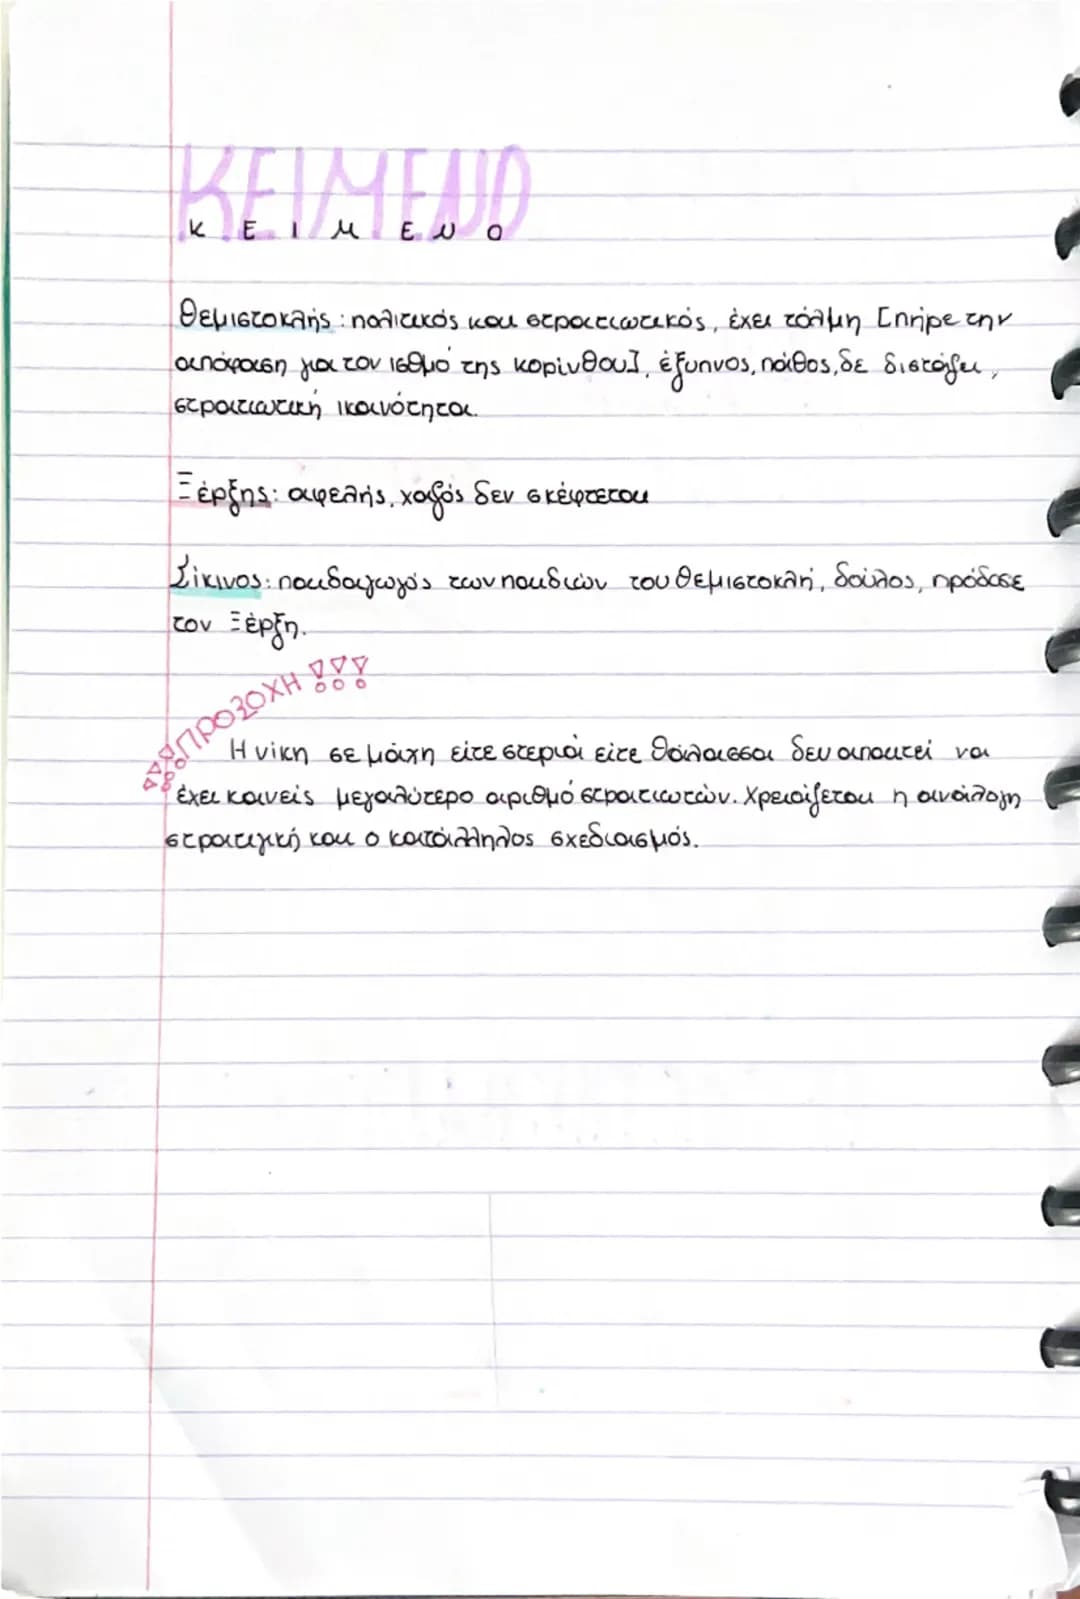 ΚΕΙΜΕΝΟ
Κ Ε Ι Μ Ε Ν Ο
Θεμιστοκλής : πολιτικός και στρατιωτικός, έχει τόλμη [πήρε την
απόφαση για τον ισθμό της κορίνθου], έξυπνος, πάθος, δε διστάζει,
στρατιωτική ικανότητα.
Ξέρξης: αφελής, χαζός δεν σκέφτεται
Σίκινος: παιδαγωγός των παιδιών του Θεμιστοκλή, δούλος, πρόδοσε
τον Ξέρξη.
ΠΡΟΣΟΧΗ !!!
Η νίκη σε μάχη είτε στεριά είτε θάλασσα δεν απαιτεί να
έχει κανείς μεγαλύτερο αριθμό στρατιωτών. Χρειάζεται η ανάλογη
στρατιγική και ο κατάλληλος σχεδιασμός.